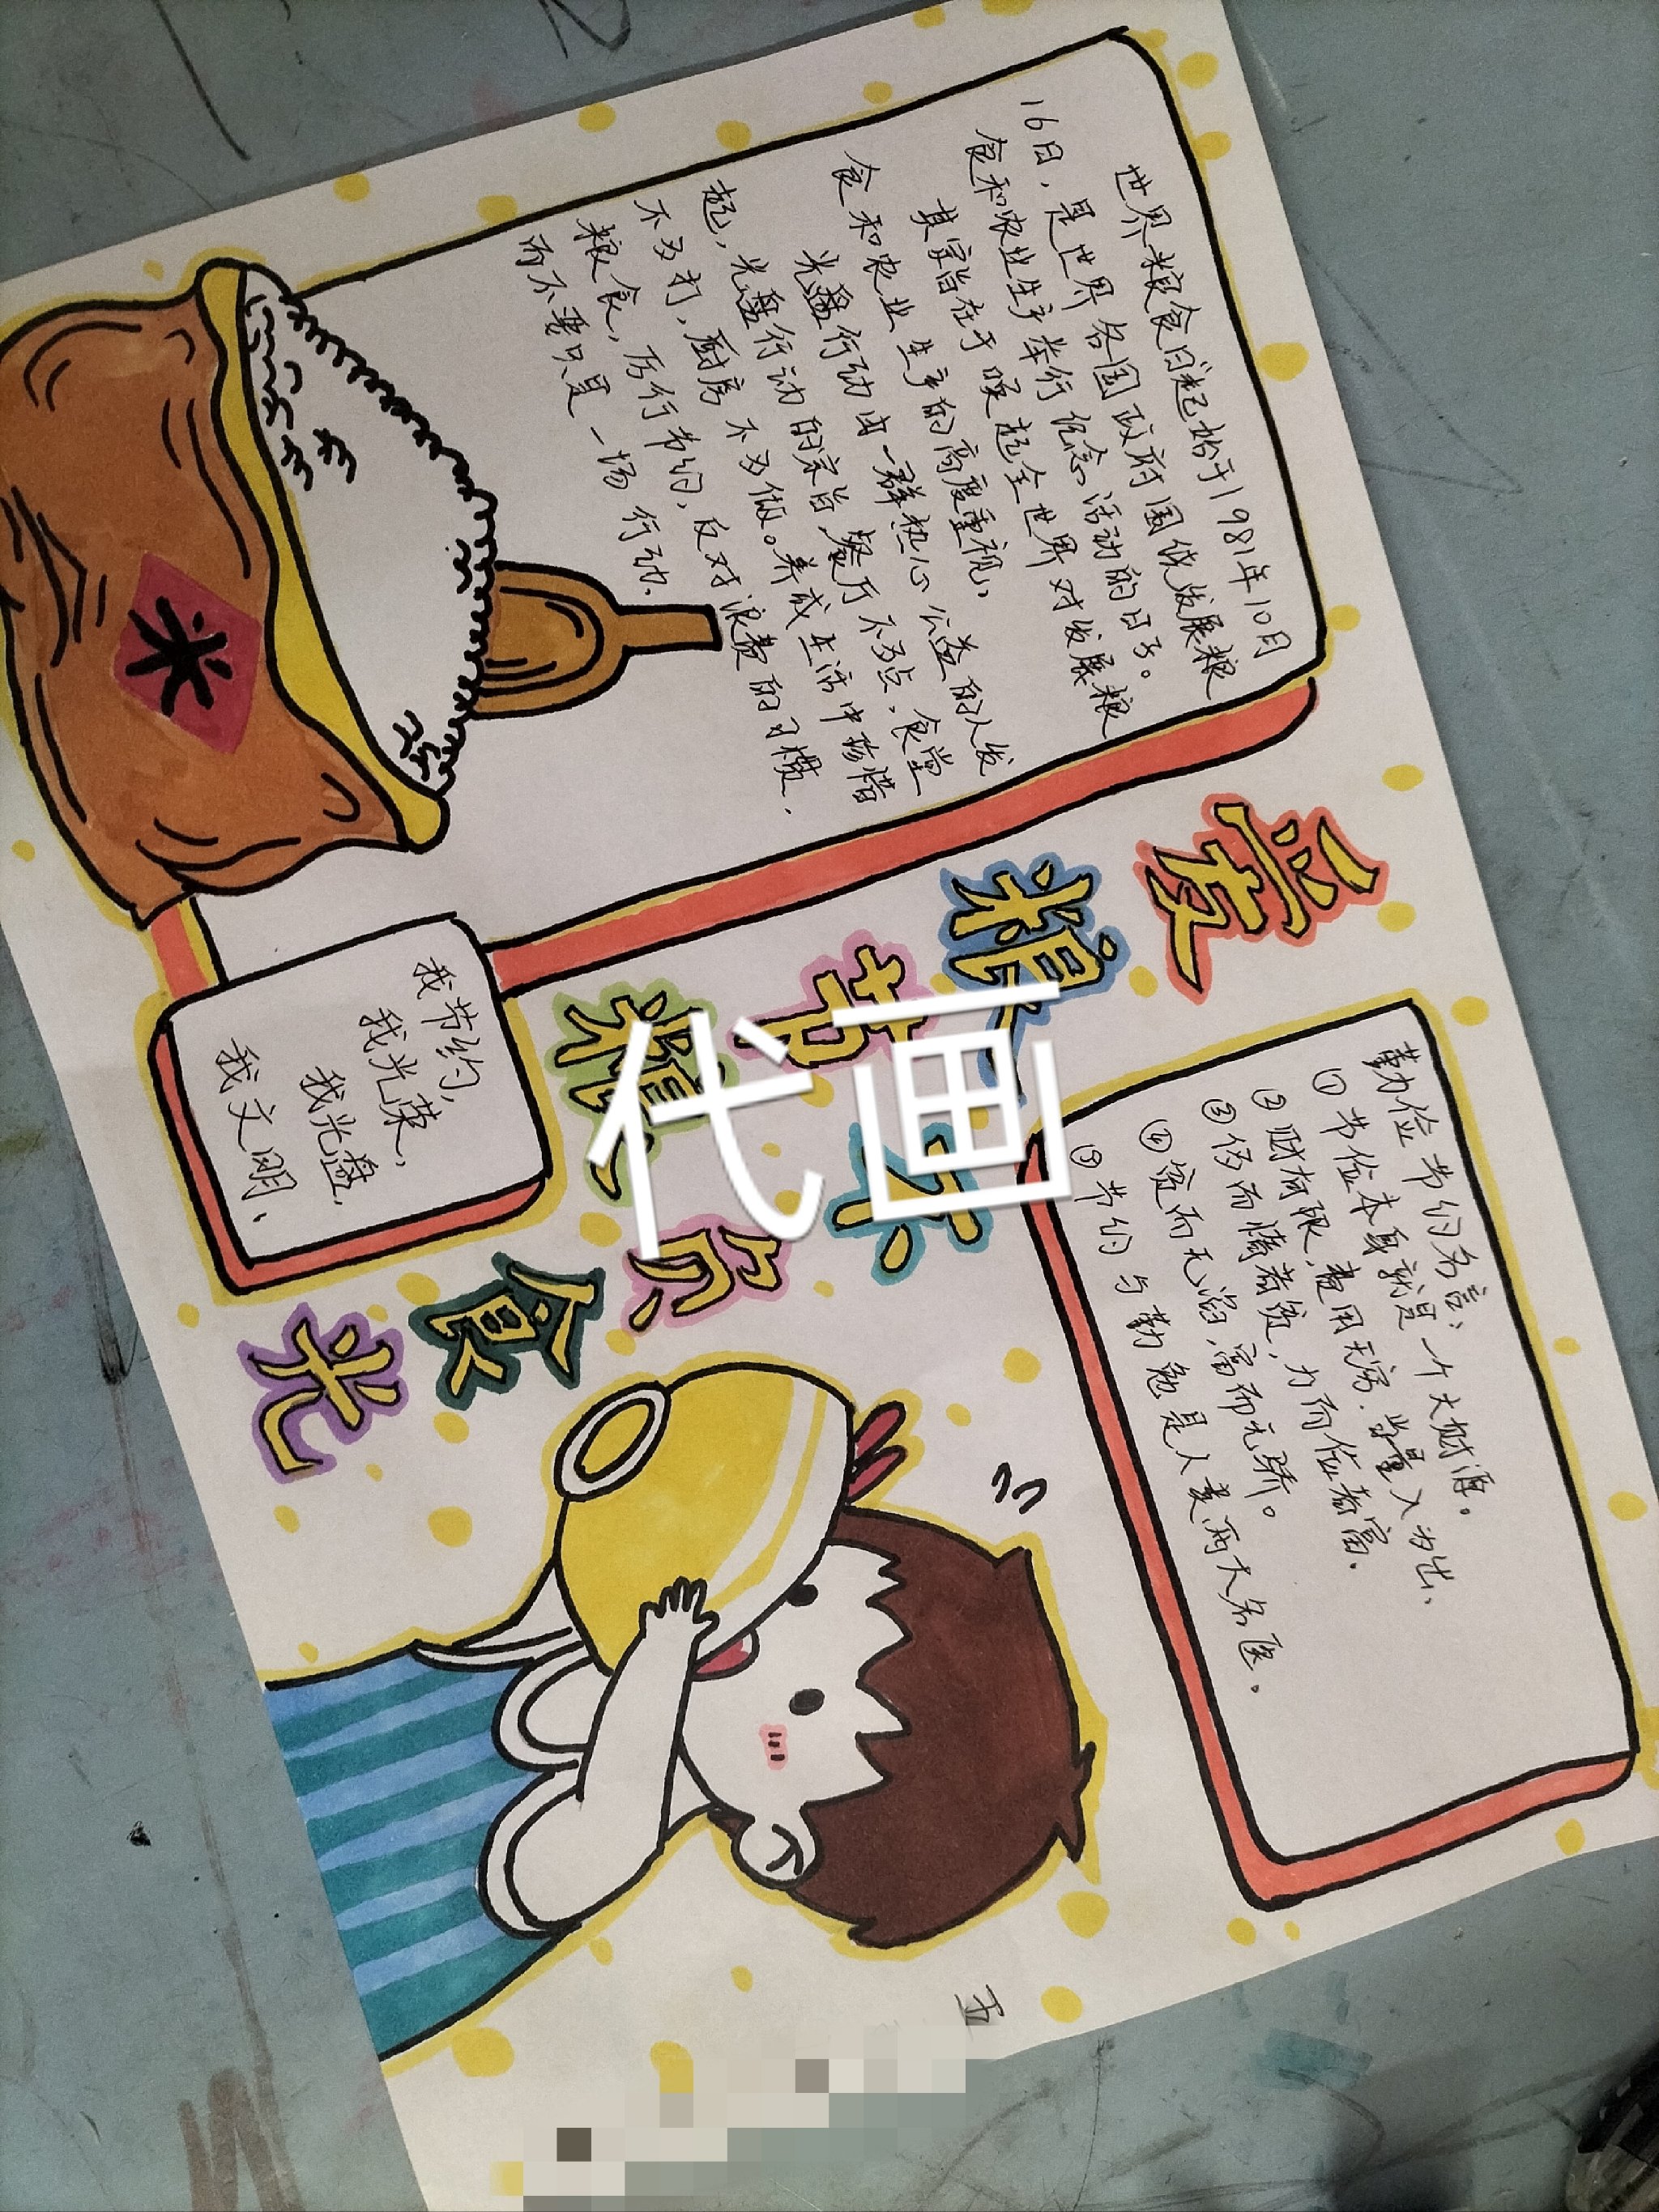 世界粮食日起始于1981年10月
16日，是世界各国政府围绕发展粮
食和农业生产举行纪念活动的日子。
其宗旨在于唤起全世界对发展粮
食和农业生产的高度重视。
光盘行动由一群热心公益的人发
起，光盘行动的宗旨，餐厅不多点，食堂
不多打，厨房不多做。养成生活中珍惜
粮食，厉行节约，反对浪费的习惯，
而不要只是一场行动。
爱粮节粮
食光
我节约，
我光荣，
我光盘，
我文明、
勤俭节约名言：
①节俭本身就是一个大财源。
②财有限，费用无穷，当量入为出、
③侈而惰者贫，力而俭者富.
④贫而无谄，富而无骄。
⑤节约与勤勉是人类两大名医。
米
五
代画